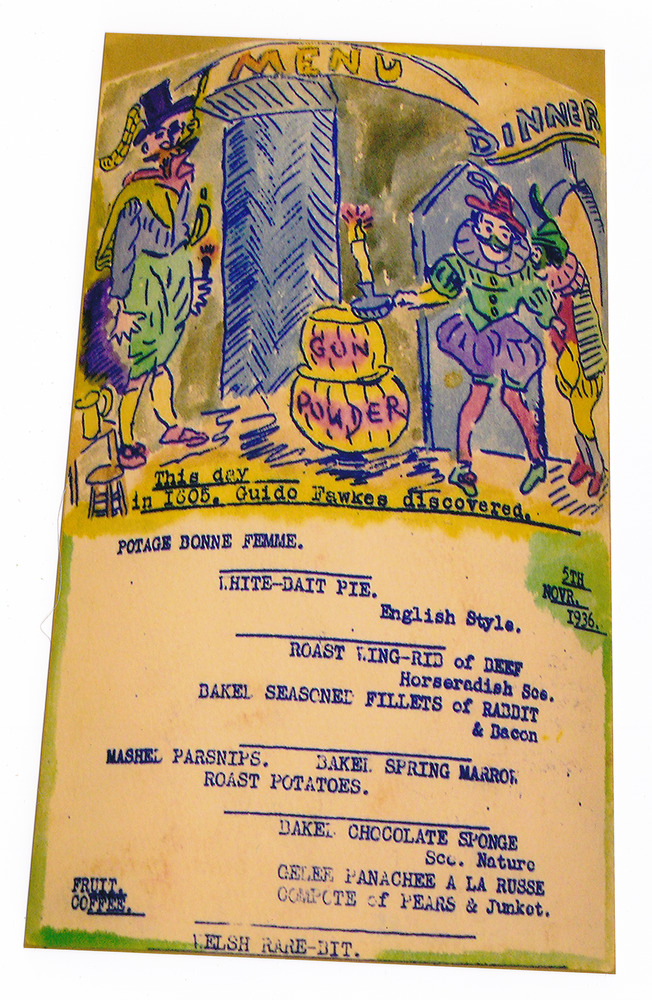 MENU
DINNER
GUN
POWDER
This day
in 1605. Guido Fawkes discovered.
POTAGE BONNE FEMME.
5TH
NOVR.
1936.
WHITE-BAIT PIE.
English Style.
ROAST WING-RIB of BEEF
Horseradish Sce.
BAKED SEASONED FILLETS of RABBIT
& Bacon
MASHED PARSNIPS. BAKED SPRING MARROW
ROAST POTATOES.
BAKED CHOCOLATE SPONGE
Sce. Nature
GELEE PANACHEE A LA RUSSE
COMPOTE of PEARS & Junket.
FRUIT.
COFFEE.
WELSH RARE-BIT.